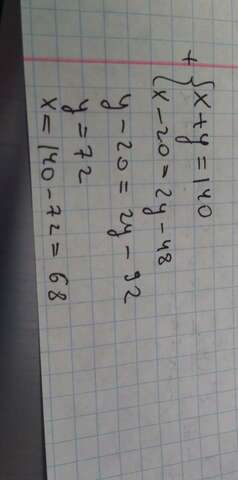 + { x + y = 140
x - 20 = 2y - 48
y - 20 = 2y - 92
y = 72
x = 140 - 72 = 68